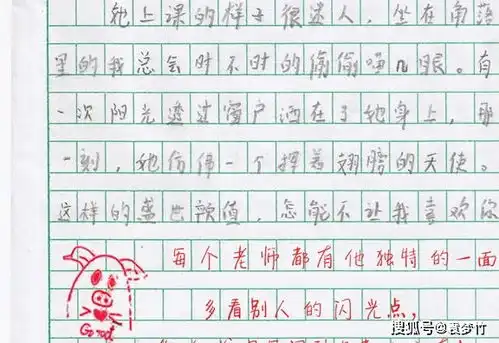 她上课的样子很迷人，坐在角落
里的我总会时不时的偷偷哂几眼。有
一次阳光透过窗户洒在了她身上，那
一刻，她仿佛一个挥着翅膀的天使。
这样的盛世颜值，怎能不让我喜欢你
每个老师都有他独特的一面
多看别人的闪光点，
Good
搜狐号@袁梦竹